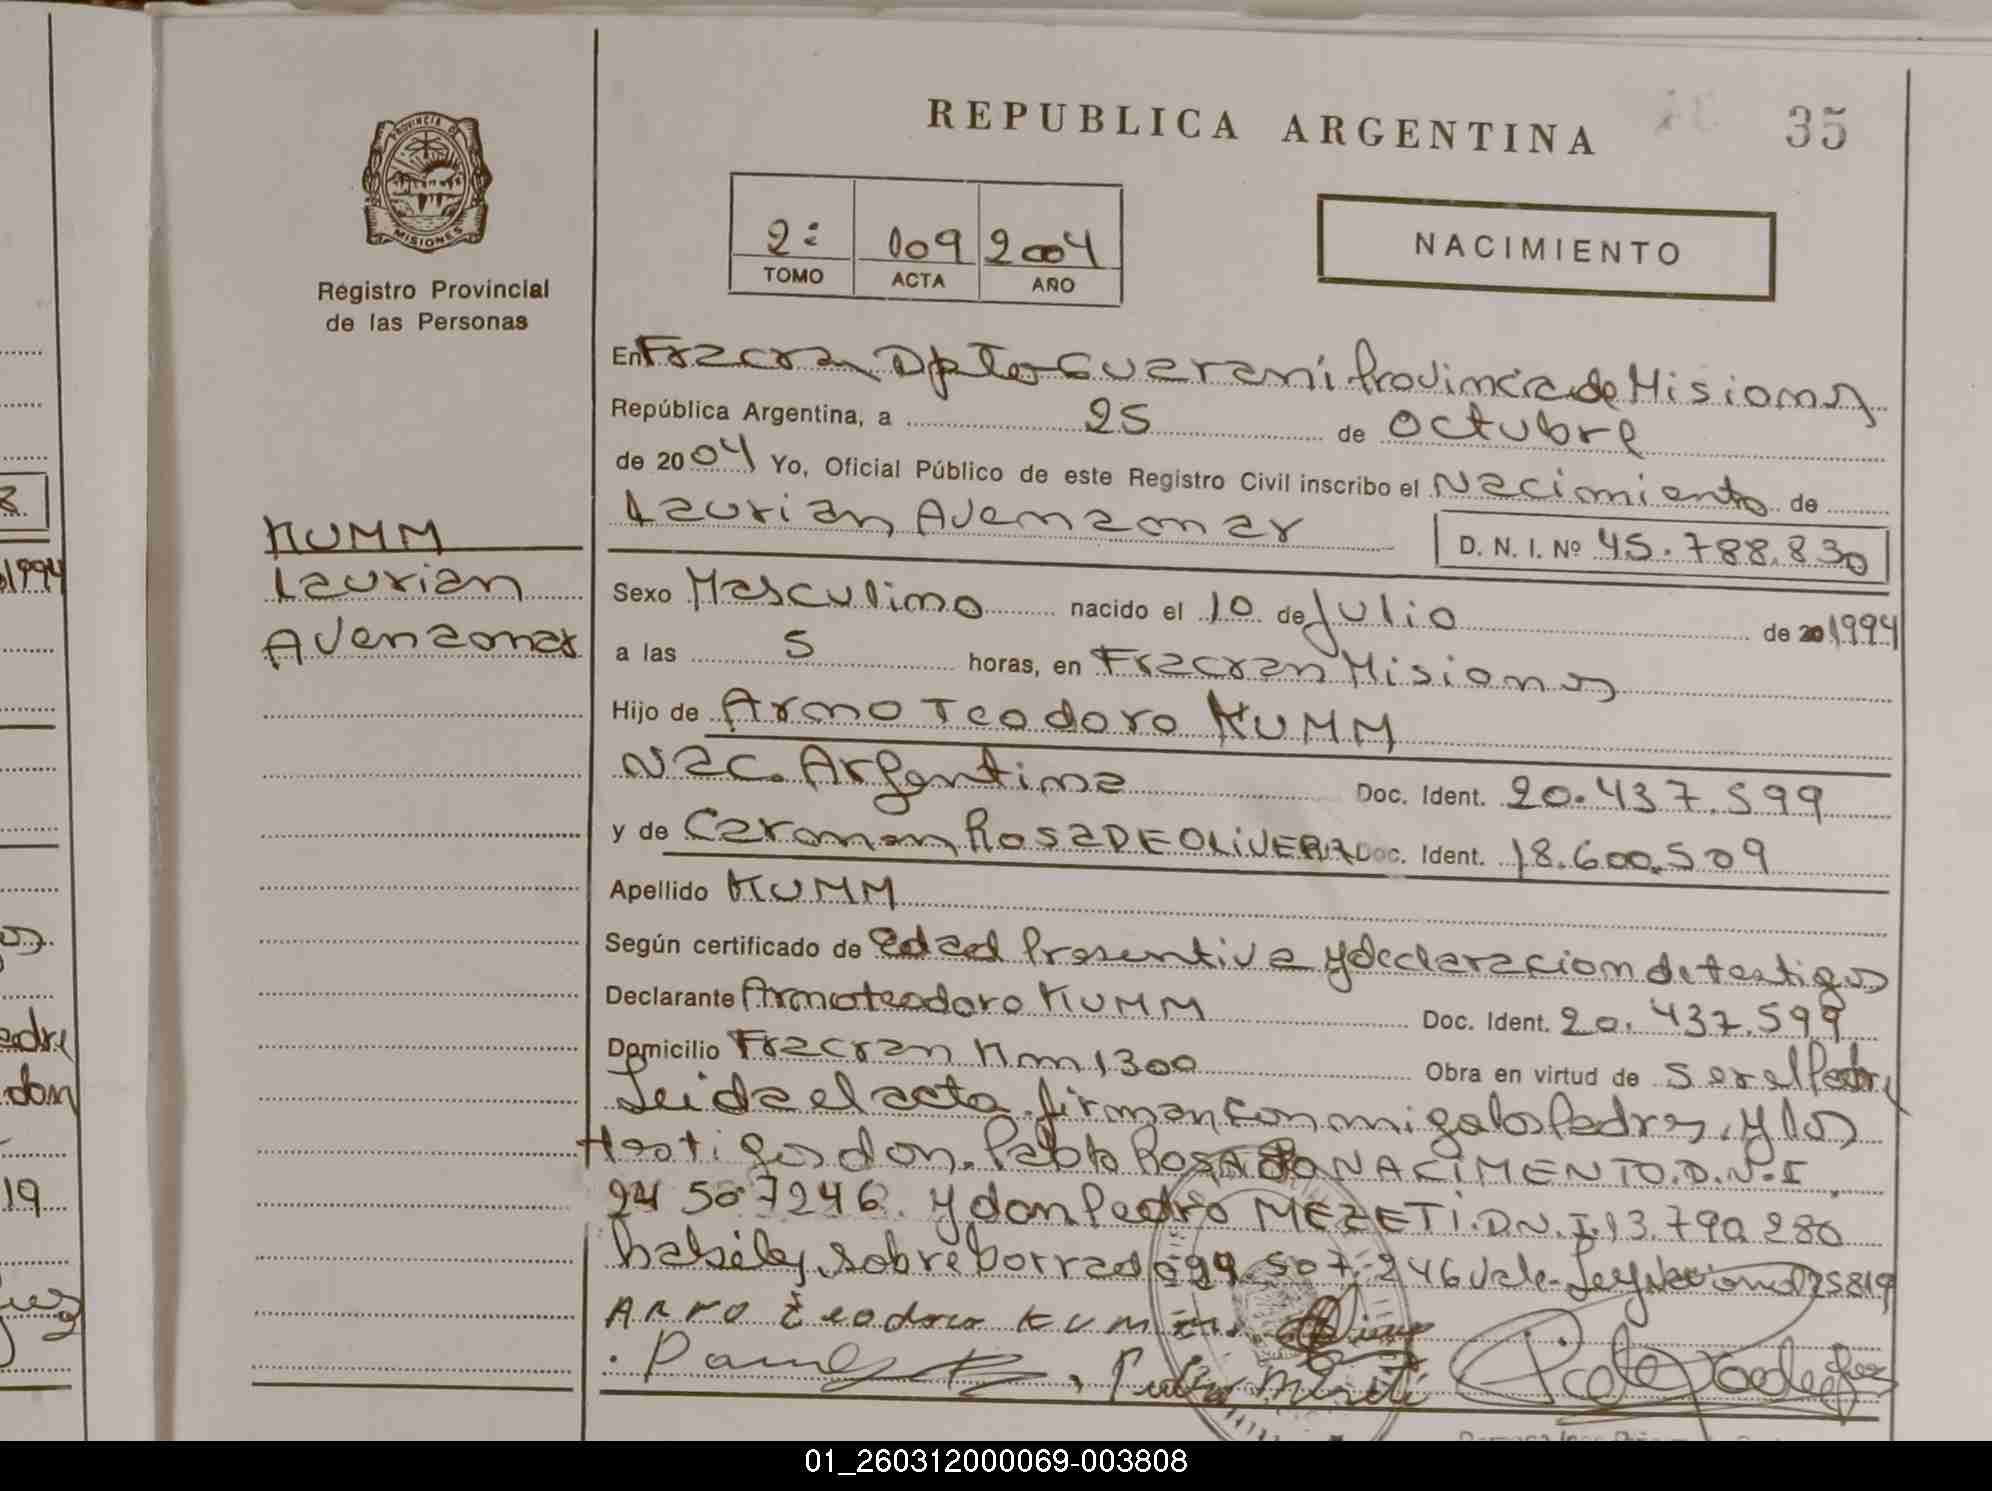 REPUBLICA ARGENTINA
35
PROVINCIA DE
MISIONES
Registro Provincial
de las Personas
2º 109 2004
TOMO ACTA AÑO
NACIMIENTO
KUMM
Laurian
Avenzonar
En Fracran Dpto Guarani Provincia de Misiones
República Argentina, a 25 de Octubre
de 2004 Yo, Oficial Público de este Registro Civil inscribo el Nacimiento de
Laurian Avenzonar D. N. I. Nº 45.788.830
Sexo Masculino nacido el 10 de Julio de 20 1994
a las 5 horas, en Fracran Misiones
Hijo de Arno Teodoro KUMM
Nac. Argentina Doc. Ident. 20.437.599
y de Carmen Rosa DE OLIVERA Doc. Ident. 18.600.509
Apellido KUMM
Según certificado de edad Presentiva y declaracion de testigos
Declarante Arno teodoro KUMM Doc. Ident. 20.437.599
Domicilio Fracran Km 1300 Obra en virtud de ser el Padre
Leida el acta firman conmigo los Padres, y los
testigos don. Pablo Rosa DO NACIMENTO. D.N.I
24 507246. y don Pedro MEZETI. D.N.I. 13.790 280
habiles, sobreborrado 507.246 Vale- Ley Nacional 25819
ARNO teodoro KUMM
8.
1994
os.
padre
don
19
01_260312000069-003808